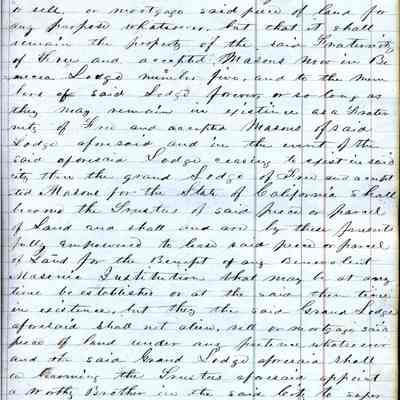 or sell, or mortgage said piece of land for
any purpose whatsoever, but that it shall
remain the property of the said Fraternity
of Free and accepted Masons now in Be
necia Lodge number five, and to the mem
bers of said Lodge forever or so long as
they may remain in existence as a Frater
nity of Free and accepted Masons of said
Lodge aforesaid and in the event of the
said aforesaid Lodge ceasing to exist in said
city then the grand Lodge of Free and accept
ted Masons for the State of California shall
become the Trustees of said piece or parcel
of Land and shall and are by these presents
fully empowered to lease said piece or parcel
of Land for the Benefit of any Benevolent
Masonic Institution that may be at any
time be established or at the said then time
in existence, but they the said Grand Lodge
aforesaid shall not alien, sell or mortgage said
piece of land under any pretence whatsoever
and the said Grand Lodge aforesaid shall
on becoming the Trustees aforesaid appoint
a Worthy Brother in the said to super